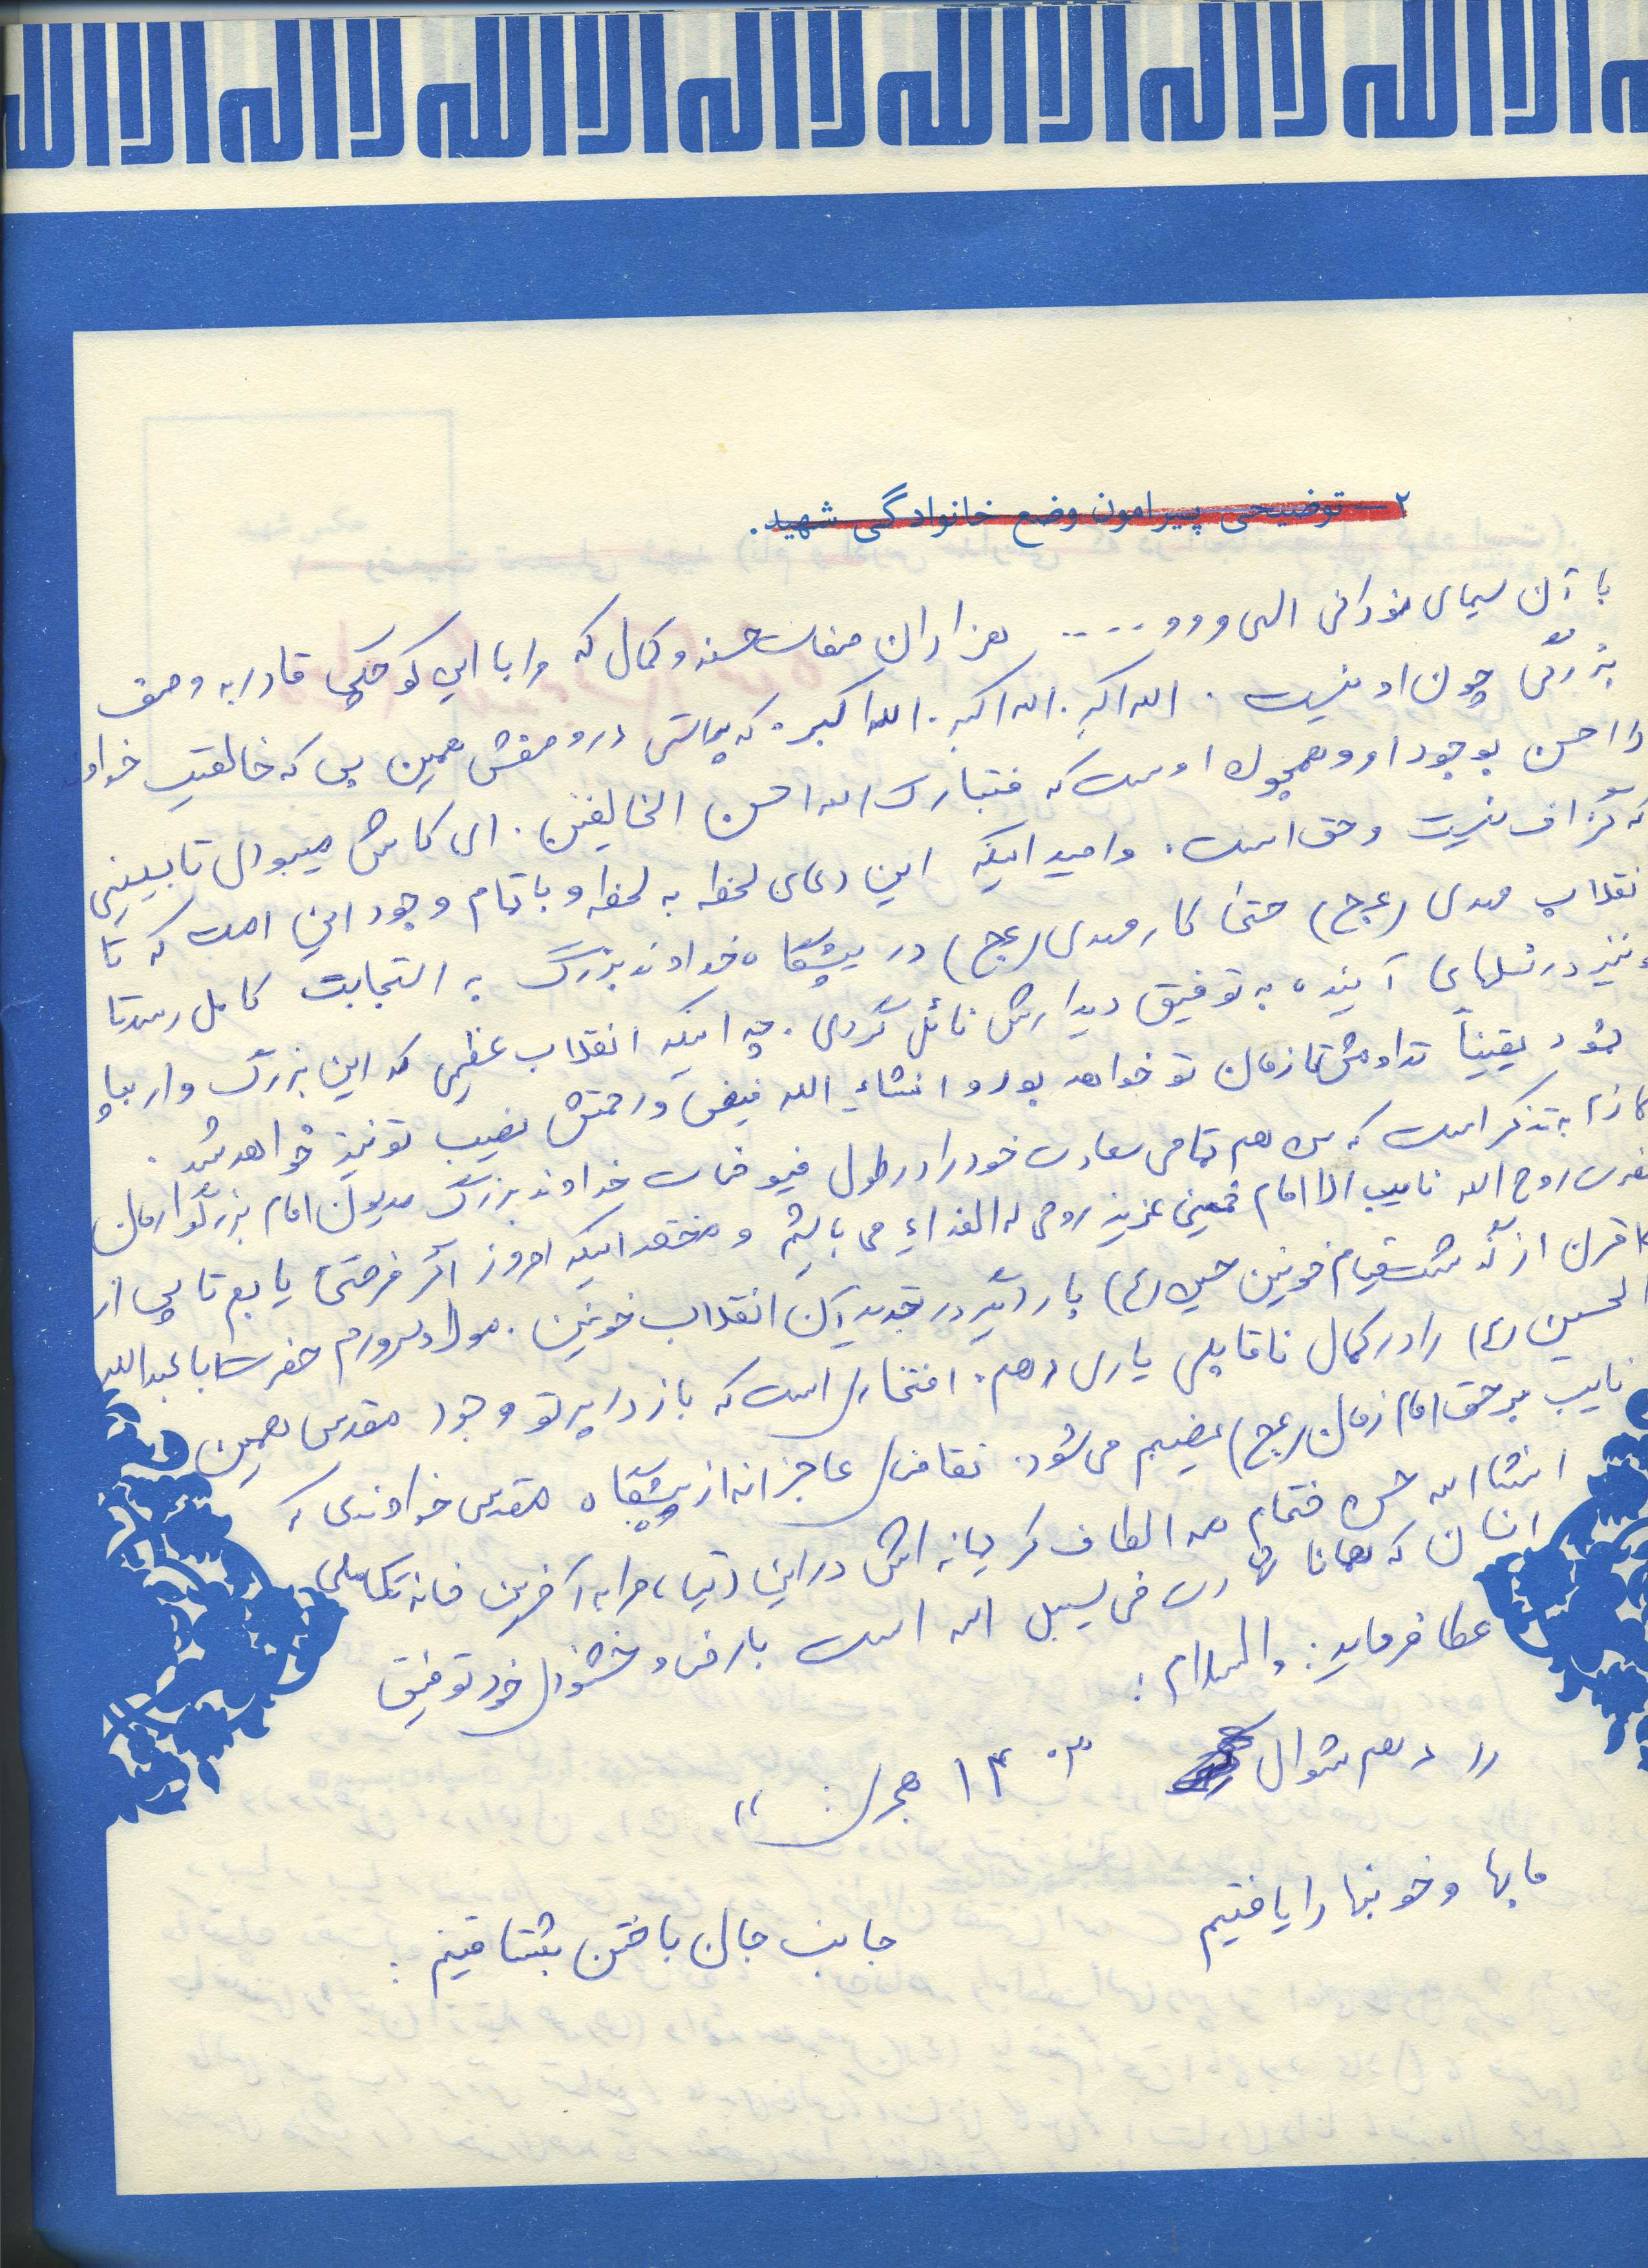 لا اله الا الله لا اله الا الله لا اله الا الله
۲ـ توضیحی پیرامون وضع خانوادگی شهید.
با آن سیمای نورانی الهی و و و .... هزاران صفات حسنه و کمال که مرا با این کوچکی قادر به وصف
بزرگی چون او نیست. الله اکبر. الله اکبر. الله اکبر. که براستی در وصفش همین بس که خالقیت خداوند
را احسن بوجود او و همچون اوست که فتبارک الله احسن الخالقین. ای کاش میبودی تا ببینی
که گزاف نیست و حق است. و امید اینکه این دعای لحظه به لحظه و با تمام وجود این امت که تا
انقلاب مهدی (عج) حتی کنار مهدی (عج) در پیشگاه خداوند بزرگ به استجابت کامل رسد تا
نیز در نسلهای آینده به توفیق دیدارش نائل گردی. چه اینکه انقلاب عظیمی که این بزرگ وار بپا
نمود یقیناً تداومش تا زمان تو خواهد بود و انشاء الله فیض و رحمتش نصیب تو نیز خواهد شد.
لازم به تذکر است که من هم تمامی سعادت خود را در طول فیوضات خداوند بزرگ مدیون امام بزرگوارمان
حضرت روح الله نایب الامام خمینی عزیز روحی له الفداء می باشم و مفتخر اینکه امروز اگر فرصتی یابم تا پس از
قرن از گذشت قیام خونین حسین (ع) بار دیگر در تجدید آن انقلاب خونین. مولا و سرورم حضرت ابا عبدالله
الحسین (ع) را در کمال ناقابلی یاری دهم. افتخاری است که باز در پرتو وجود مقدس همین
نایب بر حق امام زمان (عج) نصیبم می شود. تقاضای عاجزانه از پیشگاه مقدس خداوندی که
انشاالله حسن ختام همه الطاف کریمانه اش در این دنیا، مرا به آخرین خانه تکاملی
انسان که همانا شهادت فی سبیل الله است با رضا و خشنودی خود توفیق
عطا فرماید: والسلام:
« دهم شوال ۱۴۰۳ هجری »
ما بها و خونبها را یافتیم
جانب جان باختن بشتافتیم: